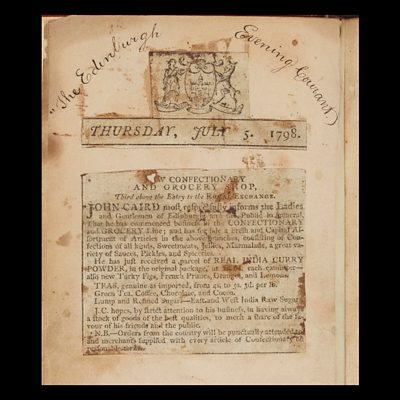 "The Edinburgh Evening Courant)
THURSDAY, JULY 5. 1798.
NEW CONFECTIONARY
AND GROCERY SHOP,
Third above the Entry to the ROYAL EXCHANGE.
JOHN CAIRD most respectfully informs the Ladies
and Gentlemen of Edinburgh and the Public in general,
That he has commenced business in the CONFECTIONARY
and GROCERY Line; and has for sale a fresh and Capital As-
sortment of Articles in the above branches, consisting of Con-
fections of all kinds, Sweetmeats, Jellies, Marmalade, a great va-
riety of Sauces, Pickles, and Spiceries.
He has just received a parcel of REAL INDIA CURRY
POWDER, in the original package, at each cannister—
also new Turky Figs, French Prunes, Oranges, and Lemons.
TEAS, genuine as imported, from to per lb.
Green Tea, Coffee, Chocolate, and Cocoa.
Lump and Refined Sugars—East and West India Raw Sugar.
J.C. hopes, by strict attention to his business, in having always
a stock of goods of the best qualities, to merit a share of the fa-
vour of his friends and the public.
N.B.—Orders from the country will be punctually attended to,
and merchants supplied with every article of Confectionary on
reasonable terms.